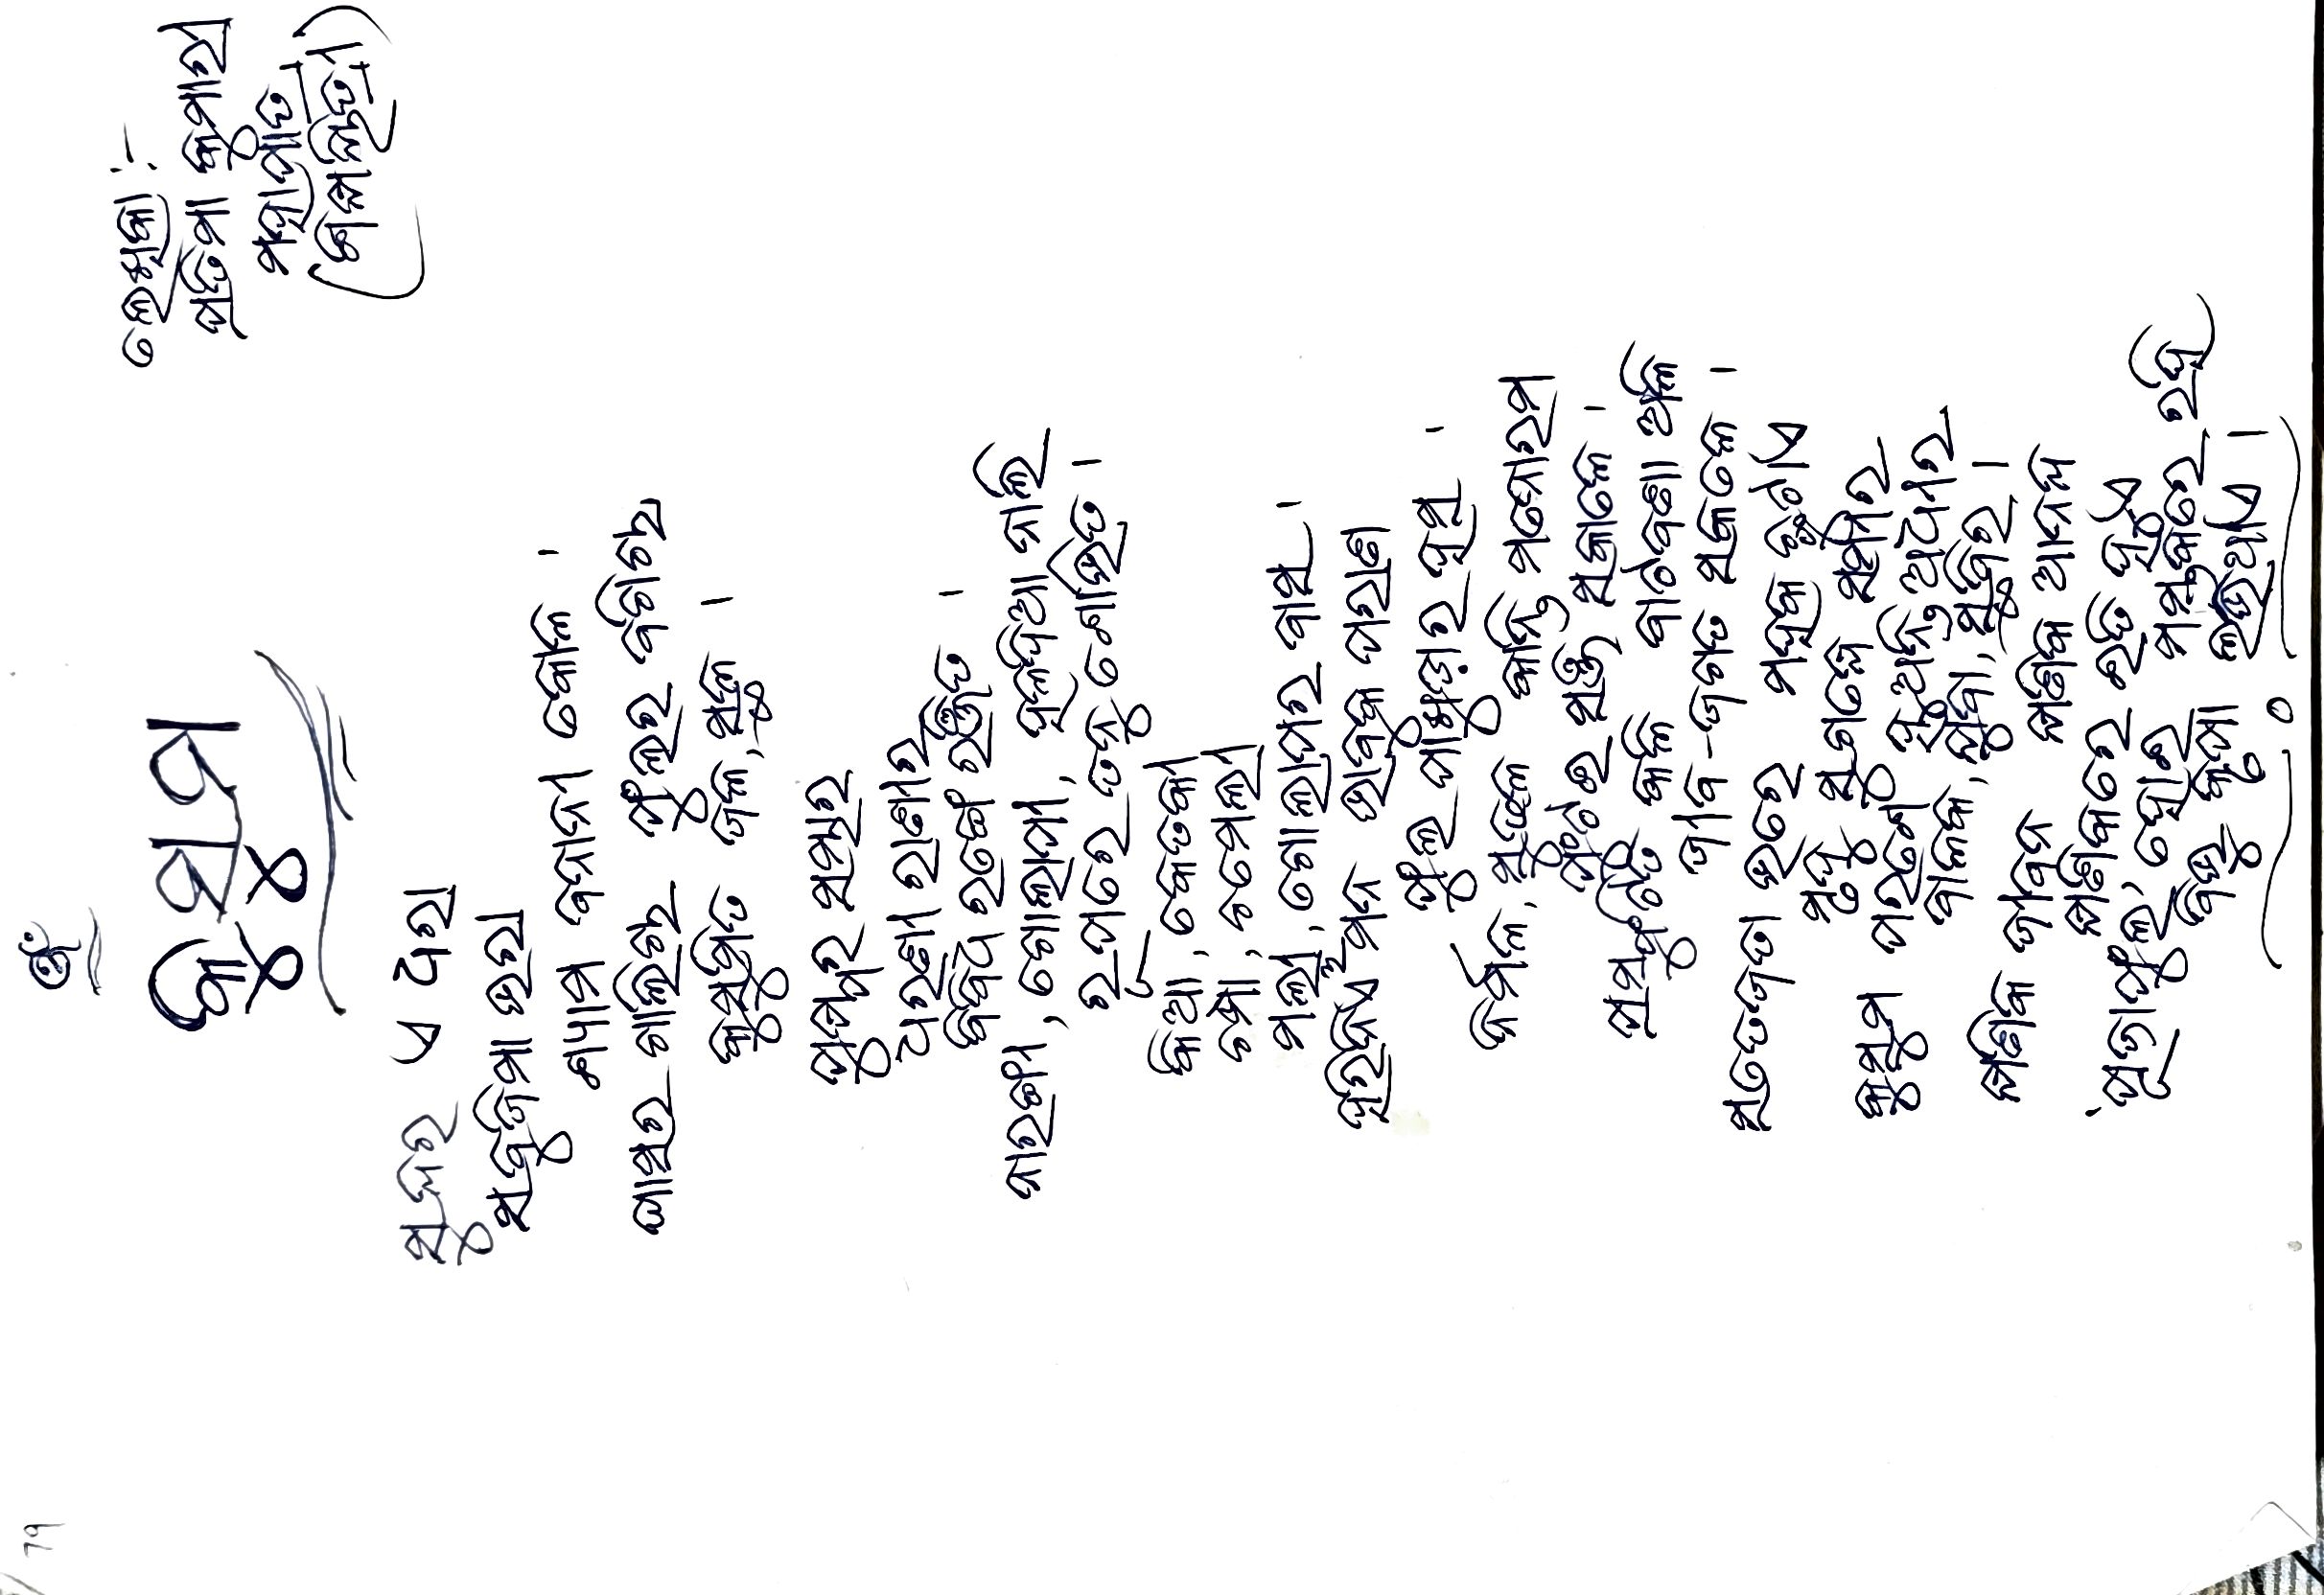 79
ଓଁ
କୁସୁମ
ଲେଖିକା :-
ପ୍ରତିମା କୁମାରୀ
ମହାପାତ୍ର
ସୁନ୍ଦର ଏ ଧରା
ସବୁଜିମା ଭରା
ଶ୍ୟାମ ବନାନୀ କୋଳ ।
ଘାସର ଗାଲିଚା ଫୁଲର ବଗିଚା
କୁସୁମିତ ଜଳ, ସ୍ଥଳ ।
ପୁଷ୍ପର ସମ୍ଭାର
ଧରଣୀ ରାଣୀର
ବିବିଧ ରଙ୍ଗେ ରଞ୍ଜିତ ।
ନାରଙ୍ଗୀ, ଗୋଲାପୀ, ହଳଦିଆ ନାଲି
ରୂପରେ ତନୁ ଶୋଭିତ ।
କିଆ, କେତକୀ
ଚମ୍ପା, ଚମେଲୀ
ମଲ୍ଲୀ, ଗୋଲାପର ବାସ ।
ହରିନିଏ ମନ ଭାବୁକ ପରାଣ
ଫୁଲ ପାଖୁଡ଼ାର ହସ ।
ନିର୍ମଳ, ସୁଢଳ କାନ୍ତି ମନୋରମ
ଫୁଟଇ ସଞ୍ଜ ସକାଳେ ।
ପ୍ରସ୍ଫୁଟିତ କଳି ବାଟବଣା ଅଳି
ଜୀବ-ଜଗତ ସକଳେ ।
ସତେଜତା ଭରେ ମହକ ଛୁଟାଏ
ମୃଦୁ ସୁଗନ୍ଧେ ସମୀର
କୁସୁମ ପରଶେ ହୁଅନ୍ତି ଅଧୀର
ବାଳକ, ଯୁବା, ସ୍ଥବିର ।
କ୍ଷଣିକ ଜୀବନ କ୍ଷଣିକ ଆନନ୍ଦ
କ୍ଷଣିକରେ ଇତି ହୁଏ
'ପୂଜାଫୁଲ' ହୋଇ ମସ୍ତକରେ ରହି
ବିଭୁ କୃପା ଲଭିଥାଏ ।